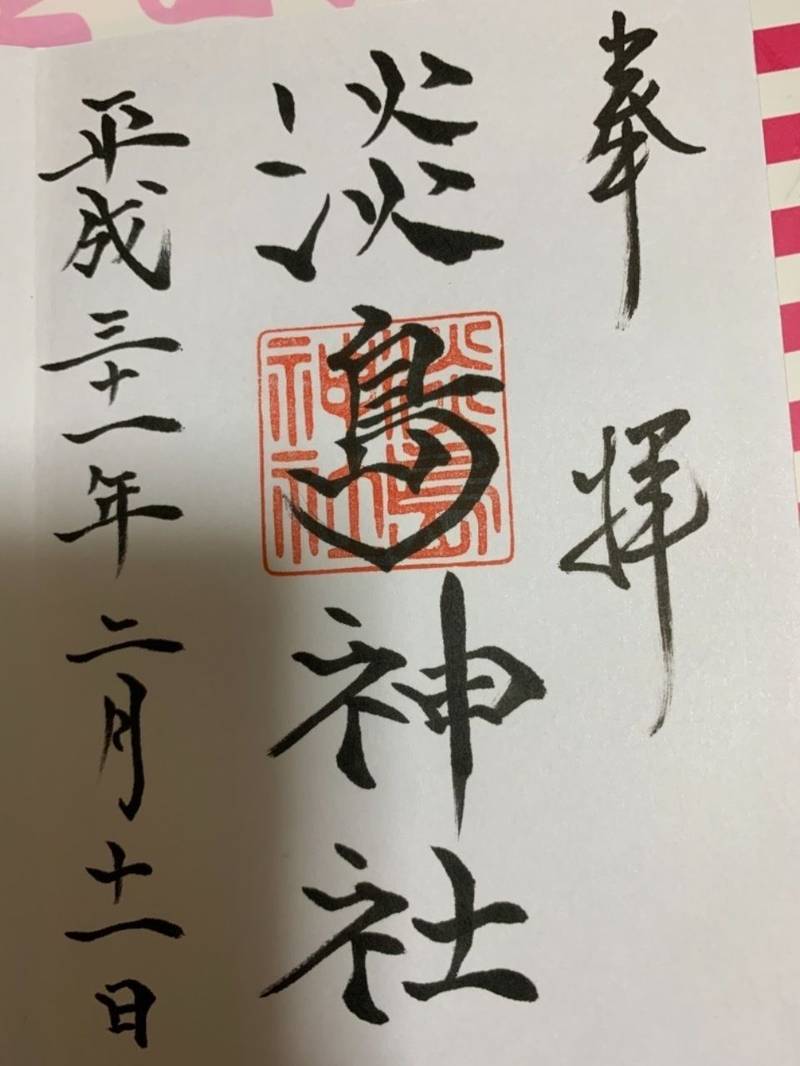 奉拝
淡島神社
淡島神社
平成三十一年二月十一日